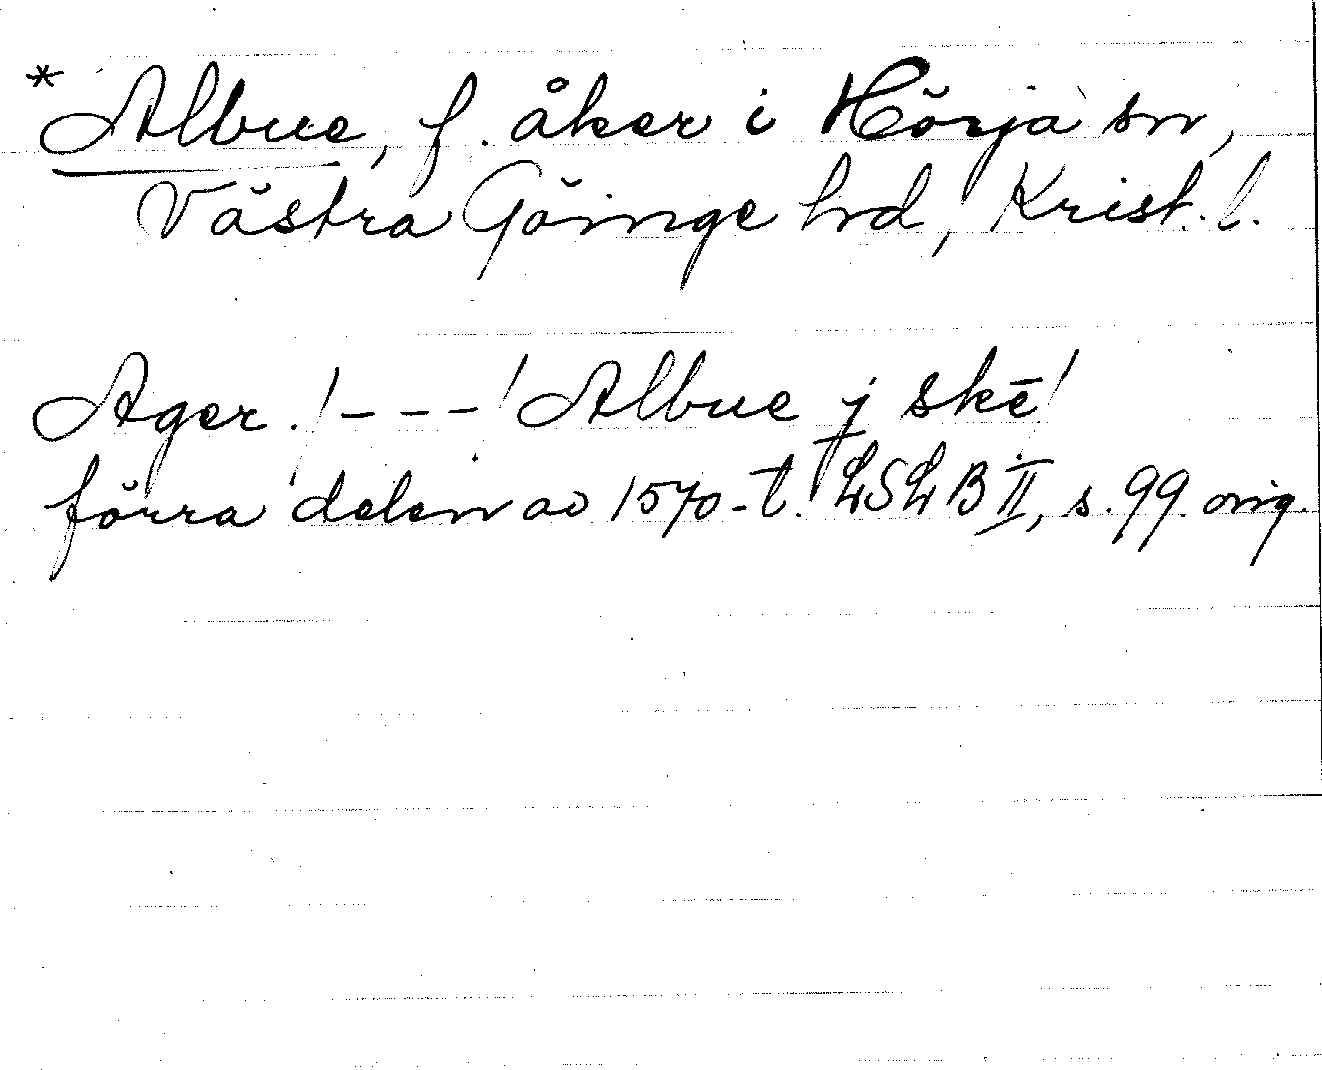 * Albue, f. åker i Hörja sn,
Västra Göinge hd, Krist. l.
Ager. /---/ Albue j skē /
förra delen av 1570-t. LSLB II, s. 99. orig.